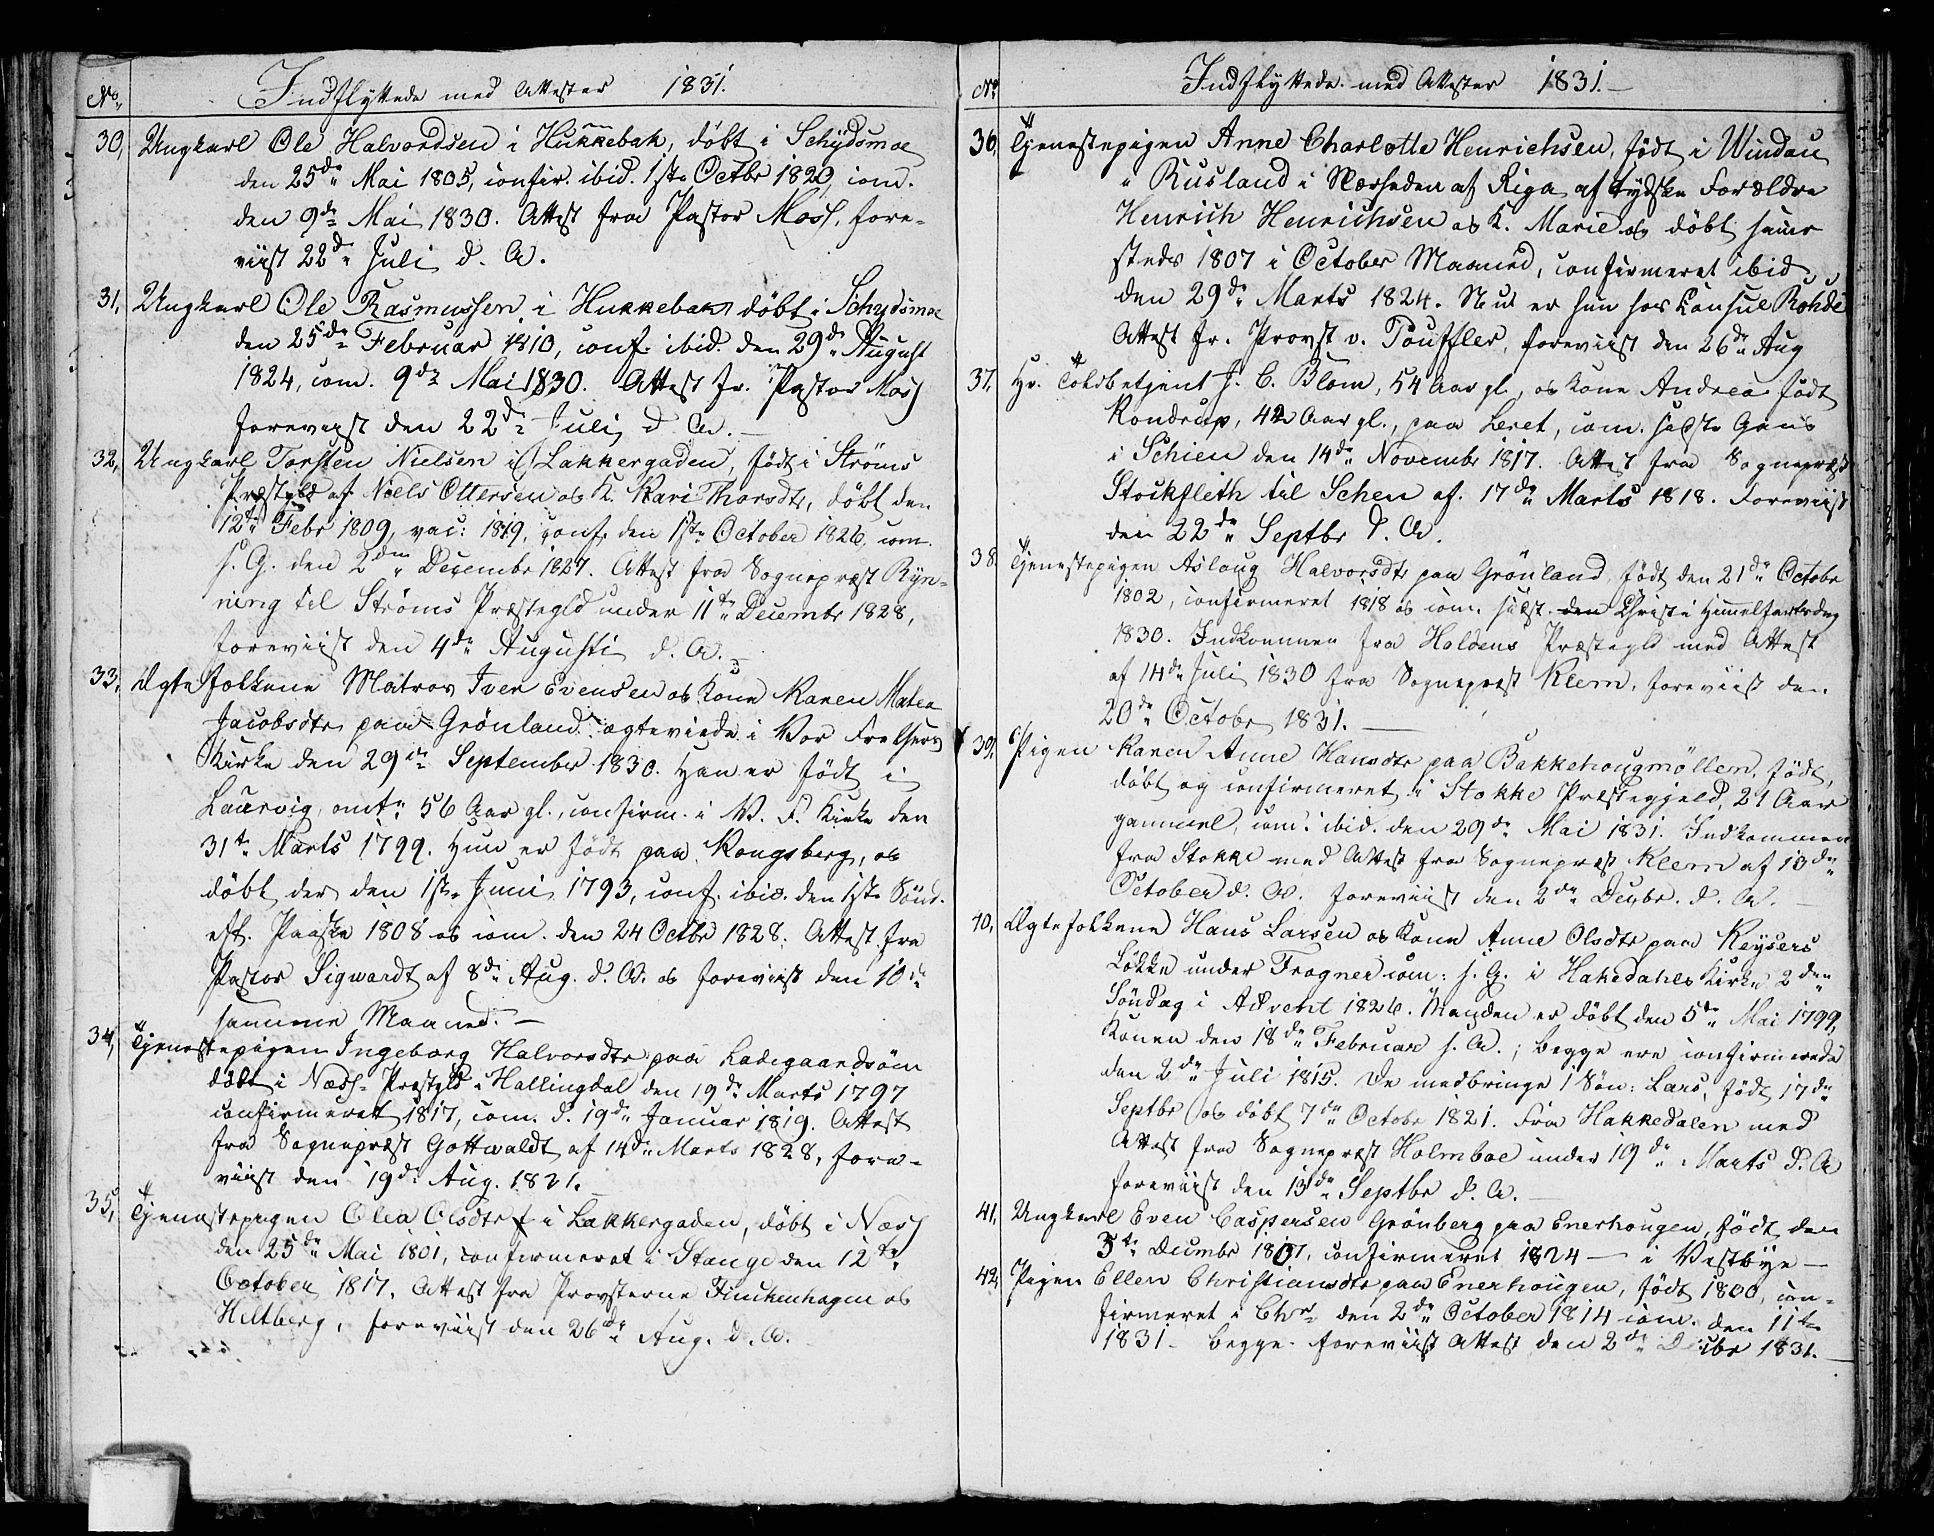 No. Indflyttede med Attester 1831.
30, Ungkarl Ole Halvordsen i Hukkebak, döbt i Schydsmoe
den 25de Mai 1805, confir. ibid. 1ste Octbr 1820, com.
den 9de Mai 1830. Attest fra Pastor Moss, fore-
viist 22de Juli d. A.
31, Ungkarl Ole Rasmussen i Hukkebak döbt i Schydsmoe
den 25de Februar 1810, conf. ibid. den 29de August
1824, com. 9de Mai 1830. Attest fr. Pastor Moss
foreviist den 22de Juli d. A.
32, Ungkarl Torsten Nielsen i Lakkergaden, födt i Ströms
Præstgld af Niels Ottersen og K. Kari Thorsdtr, döbt den
12te Febr 1809, vac: 1819, conf. den 1ste October 1826, com.
s. G. den 2den Decembr 1827. Attest fra Sognepræst Ryn-
ning til Ströms Præstegld under 11te Decembr 1828,
foreviist den 4de Augusti d. A.
33, Ægtefolkene Matros Iver Evensen og Kone Karen Matea
Jacobsdtr paa Grönland ægteviede i Vor Frelsers
Kirke den 29de September 1830. Han er födt i
Laurvig, omtr 56 Aar gl., confirm. i V. F. Kirke den
31te Marts 1799. Hun er födt paa Kongsberg, og
döbt der den 1ste Juni 1793, conf. ibid. den 1ste Sönd.
eft. Paaske 1808 og com. den 24 Octbr 1828. Attest fra
Pastor Sigwardt af 8de Aug. d. A. og foreviist den 10de
samme Maaned. —
34, Tjenestepigen Ingeborg Halvorsdtr paa Ladegaardsöen
döbt i Næss Præstgld i Hallingdal den 19de Marts 1797
confirmeret 1817, com. d. 19de Januar 1819. Attest
fra Sognepræst Gottwaldt af 14de Marts 1828, fore-
viist den 19de Aug. 1831.
35, Tjenestepigen Olea Olsdtr i Lakkergaden, döbt i Næss
den 25de Mai 1801, confirmeret i Stange den 12te
October 1817. Attest fra Provsterne Finckenhagen og
Hiltberg, foreviist den 26de Aug. d. A.
No. Indflyttede med Attester 1831. —
36, Tjenestepigen Anne Charlotte Henrichsen, födt i Windau
i Rusland i Nærheden af Riga af tydske Forældre
Henrich Henrichsen og K. Marie og döbt samme
steds 1807 i October Maaned, confirmeret ibid
den 29de Marts 1824. Nu er hun hos Consul Rohde
Attest fr. Provst v. Touffler, foreviist den 26de Aug
37. Hr. Toldbetjent J. C. Blom, 54 Aar gl., og Kone Andrea födt
Rondrup, 42 Aar gl., paa Leret, com. sidste Gang
i Schien den 14de Novembr 1817. Attest fra Sognepræst
Stockfleth til Schen af 17de Marts 1818. Foreviist
den 22de Septbr d. A.
38. Tjenestepigen Aslaug Halvorsdtr paa Grönland, födt den 21de Octobr
1802, confirmeret 1818 og com. sidst den Christi Himmelfartsdag
1830. Indkommen fra Holdens Præstegld med Attest
af 14de Juli 1830 fra Sognepræst Klem, foreviist den
20de Octobr 1831. —
39, Pigen Karen Anne Hansdtr paa Bakkehougmöllen, födt,
döbt og confirmeret i Stokke Præstegjeld, 21 Aar
gammel, com. ibid. den 29de Mai 1831. Indkommen
fra Stokke med Attest fra Sognepræst Klem af 13de
October d. A. foreviist den 2de Decbr. d. A. —
40, Ægtefolkene Hans Larsen og Kone Anne Olsdtr paa Keysers
Lökke under Frogner com: s. G. i Hakedahls Kirke 2den
Söndag i Advent 1826. Manden er döbt den 5te Mai 1799,
Konen den 18de Februar s. A.; begge ere confirmerede
den 2de Juli 1815. De medbringe 1 Sön: Lars, födt 17de
Septbr og döbt 7de Octobr 1821. Fra Hakkedalen med
Attest fra Sognepræst Holmboe under 19de Marts d. A
foreviist den 13de Septbr d. A. —
41, Ungkarl Even Caspersen Grönberg paa Enerhougen, födt den
5te Decembr 1807, confirmeret 1824 — i Vestbye —
42, Pigen Ellen Christiansdtr paa Enerhougen, födt 1800, con-
firmeret i Chra den 2de October 1814 com. den 11te
1831. begge foreviist Attest den 2de Decbr 1831. —